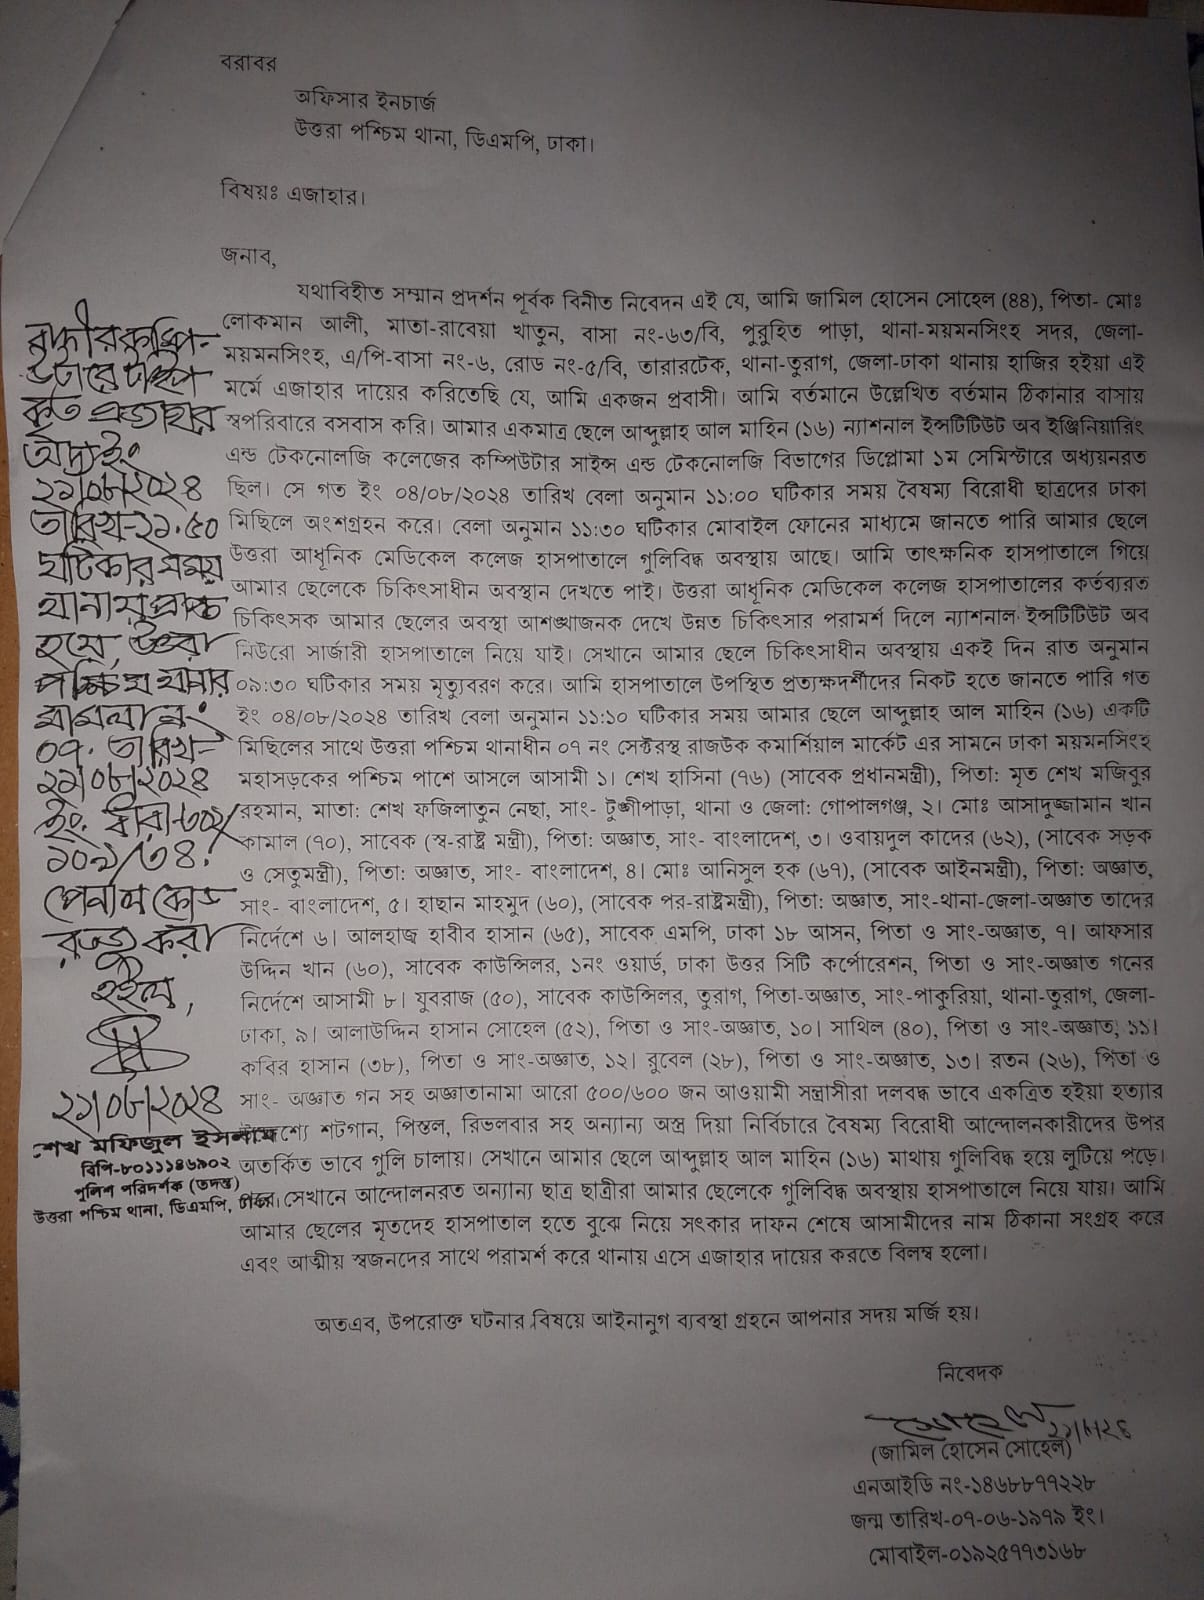 বরাবর
অফিসার ইনচার্জ
উত্তরা পশ্চিম থানা, ডিএমপি, ঢাকা।
বিষয়ঃ এজাহার।
জনাব,
যথাবিহীত সম্মান প্রদর্শন পূর্বক বিনীত নিবেদন এই যে, আমি জামিল হোসেন সোহেল (৪৪), পিতা- মোঃ
লোকমান আলী, মাতা-রাবেয়া খাতুন, বাসা নং-৬৩/বি, পুরুহিত পাড়া, থানা-ময়মনসিংহ সদর, জেলা-
ময়মনসিংহ, এ/পি-বাসা নং-৬, রোড নং-৫/বি, তারারটেক, থানা-তুরাগ, জেলা-ঢাকা থানায় হাজির হইয়া এই
মর্মে এজাহার দায়ের করিতেছি যে, আমি একজন প্রবাসী। আমি বর্তমানে উল্লেখিত বর্তমান ঠিকানার বাসায়
স্বপরিবারে বসবাস করি। আমার একমাত্র ছেলে আব্দুল্লাহ আল মাহিন (১৬) ন্যাশনাল ইন্সটিটিউট অব ইঞ্জিনিয়ারিং
এন্ড টেকনোলজি কলেজের কম্পিউটার সাইন্স এন্ড টেকনোলজি বিভাগের ডিপ্লোমা ১ম সেমিস্টারে অধ্যয়নরত
ছিল। সে গত ইং ০৪/০৮/২০২৪ তারিখ বেলা অনুমান ১১:০০ ঘটিকার সময় বৈষম্য বিরোধী ছাত্রদের ঢাকা
মিছিলে অংশগ্রহন করে। বেলা অনুমান ১১:৩০ ঘটিকার মোবাইল ফোনের মাধ্যমে জানতে পারি আমার ছেলে
উত্তরা আধুনিক মেডিকেল কলেজ হাসপাতালে গুলিবিদ্ধ অবস্থায় আছে। আমি তাৎক্ষনিক হাসপাতালে গিয়ে
আমার ছেলেকে চিকিৎসাধীন অবস্থান দেখতে পাই। উত্তরা আধুনিক মেডিকেল কলেজ হাসপাতালের কর্তব্যরত
চিকিৎসক আমার ছেলের অবস্থা আশঙ্খাজনক দেখে উন্নত চিকিৎসার পরামর্শ দিলে ন্যাশনাল ইন্সটিটিউট অব
নিউরো সার্জারী হাসপাতালে নিয়ে যাই। সেখানে আমার ছেলে চিকিৎসাধীন অবস্থায় একই দিন রাত অনুমান
০৯:৩০ ঘটিকার সময় মৃত্যুবরণ করে। আমি হাসপাতালে উপস্থিত প্রত্যক্ষদর্শীদের নিকট হতে জানতে পারি গত
ইং ০৪/০৮/২০২৪ তারিখ বেলা অনুমান ১১:১০ ঘটিকার সময় আমার ছেলে আব্দুল্লাহ আল মাহিন (১৬) একটি
মিছিলের সাথে উত্তরা পশ্চিম থানাধীন ০৭ নং সেক্টরস্থ রাজউক কমার্শিয়াল মার্কেট এর সামনে ঢাকা ময়মনসিংহ
মহাসড়কের পশ্চিম পাশে আসলে আসামী ১। শেখ হাসিনা (৭৬) (সাবেক প্রধানমন্ত্রী), পিতা: মৃত শেখ মজিবুর
রহমান, মাতা: শেখ ফজিলাতুন নেছা, সাং- টুঙ্গীপাড়া, থানা ও জেলা: গোপালগঞ্জ, ২। মোঃ আসাদুজ্জামান খান
কামাল (৭০), সাবেক (স্ব-রাষ্ট্র মন্ত্রী), পিতা: অজ্ঞাত, সাং- বাংলাদেশ, ৩। ওবায়দুল কাদের (৬২), (সাবেক সড়ক
ও সেতুমন্ত্রী), পিতা: অজ্ঞাত, সাং- বাংলাদেশ, ৪। মোঃ আনিসুল হক (৬৭), (সাবেক আইনমন্ত্রী), পিতা: অজ্ঞাত,
সাং- বাংলাদেশ, ৫। হাছান মাহমুদ (৬০), (সাবেক পর-রাষ্ট্রমন্ত্রী), পিতা: অজ্ঞাত, সাং-থানা-জেলা-অজ্ঞাত তাদের
নির্দেশে ৬। আলহাজ হাবীব হাসান (৬৫), সাবেক এমপি, ঢাকা ১৮ আসন, পিতা ও সাং-অজ্ঞাত, ৭। আফসার
উদ্দিন খান (৬০), সাবেক কাউন্সিলর, ১নং ওয়ার্ড, ঢাকা উত্তর সিটি কর্পোরেশন, পিতা ও সাং-অজ্ঞাত গনের
নির্দেশে আসামী ৮। যুবরাজ (৫০), সাবেক কাউন্সিলর, তুরাগ, পিতা-অজ্ঞাত, সাং-পাকুরিয়া, থানা-তুরাগ, জেলা-
ঢাকা, ৯। আলাউদ্দিন হাসান সোহেল (৫২), পিতা ও সাং-অজ্ঞাত, ১০। সাথিল (৪০), পিতা ও সাং-অজ্ঞাত, ১১।
কবির হাসান (৩৮), পিতা ও সাং-অজ্ঞাত, ১২। রুবেল (২৮), পিতা ও সাং-অজ্ঞাত, ১৩। রতন (২৬), পিতা ও
সাং- অজ্ঞাত গন সহ অজ্ঞাতানামা আরো ৫০০/৬০০ জন আওয়ামী সন্ত্রাসীরা দলবদ্ধ ভাবে একত্রিত হইয়া হত্যার
শ্যে শটগান, পিস্তল, রিভলবার সহ অন্যান্য অস্ত্র দিয়া নির্বিচারে বৈষম্য বিরোধী আন্দোলনকারীদের উপর
অতর্কিত ভাবে গুলি চালায়। সেখানে আমার ছেলে আব্দুল্লাহ আল মাহিন (১৬) মাথায় গুলিবিদ্ধ হয়ে লুটিয়ে পড়ে।
সেখানে আন্দোলনরত অন্যান্য ছাত্র ছাত্রীরা আমার ছেলেকে গুলিবিদ্ধ অবস্থায় হাসপাতালে নিয়ে যায়। আমি
আমার ছেলের মৃতদেহ হাসপাতাল হতে বুঝে নিয়ে সৎকার দাফন শেষে আসামীদের নাম ঠিকানা সংগ্রহ করে
এবং আত্মীয় স্বজনদের সাথে পরামর্শ করে থানায় এসে এজাহার দায়ের করতে বিলম্ব হলো।
অতএব, উপরোক্ত ঘটনার বিষয়ে আইনানুগ ব্যবস্থা গ্রহনে আপনার সদয় মর্জি হয়।
বাদীর কম্পি-
উটারে টাইপ
কৃত এজাহার
অদ্য ইং
২১/০৮/২০২৪
তারিখ-২১.৫০
ঘটিকার সময়
থানায় প্রাপ্ত
হয়ে, উত্তরা
পশ্চিম থানার
মামলা নং
০৭. তারিখ-
২১/০৮/২০২৪
ইং. ধারা-৩০২/
১০৯/৩৪.
পেনাল কোড
রুজু করা
হইল,
২১/০৮/২০২৪
শেখ মফিজুল ইসলাম
বিপি-৮০১১১৪৬৯০২
পুলিশ পরিদর্শক (তদন্ত)
উত্তরা পশ্চিম থানা, ডিএমপি, ঢাকা।
নিবেদক
সোহেল
২১/৮/২৪
(জামিল হোসেন সোহেল)
এনআইডি নং-১৪৬৮৮৭৭২২৮
জন্ম তারিখ-০৭-০৬-১৯৭৯ ইং।
মোবাইল-০১৯২৫৭৭৩১৬৮